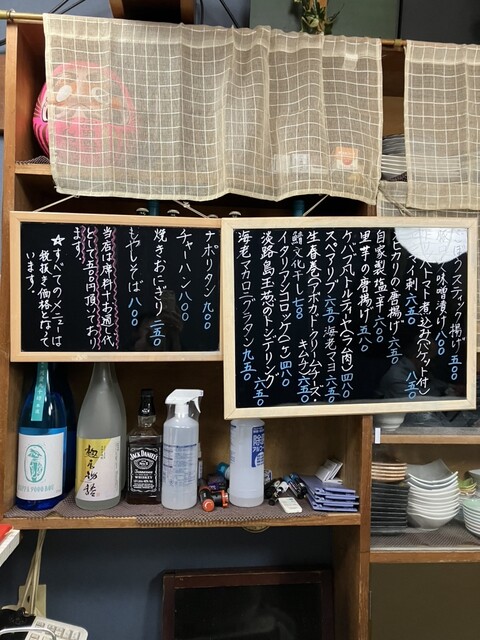 ごぼうスティック揚げ 五〇〇
味噌漬け 八〇〇
トマト煮込み(バケット付) 八五〇
イ刺 六五〇
ヒカリの唐揚げ 六五〇
自家製塩辛 六八〇
里芋の唐揚げ 五八〇
ケバブ風トルティヤ(ラム肉) 四八〇
スペアリブ 六五〇
海老マヨ 六五〇
生春巻(アボカドクリームチーズ・キムタク) 五五〇
鯖文化干し 七八〇
イタリアンコロッケ(二ヶ) 四八〇
淡路島玉葱のトンデリング 六五〇
海老マカロニグラタン 九五〇
ナポリタン 九〇〇
チャーハン 八〇〇
焼きおにぎり 二五〇
もやしそば 八〇〇
当店は席料+お通し代
として五〇〇円頂いており
ます。
☆すべてのメニューは
税抜き価格となって
います。
JACK DANIEL'S
Tennessee
除菌